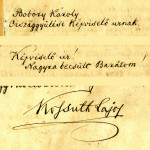 Bobory Károly
Országgyűlési Képviselő urnak.
Képviselő úr!
Nagyra becsült Barátom!
Kossuth Lajos